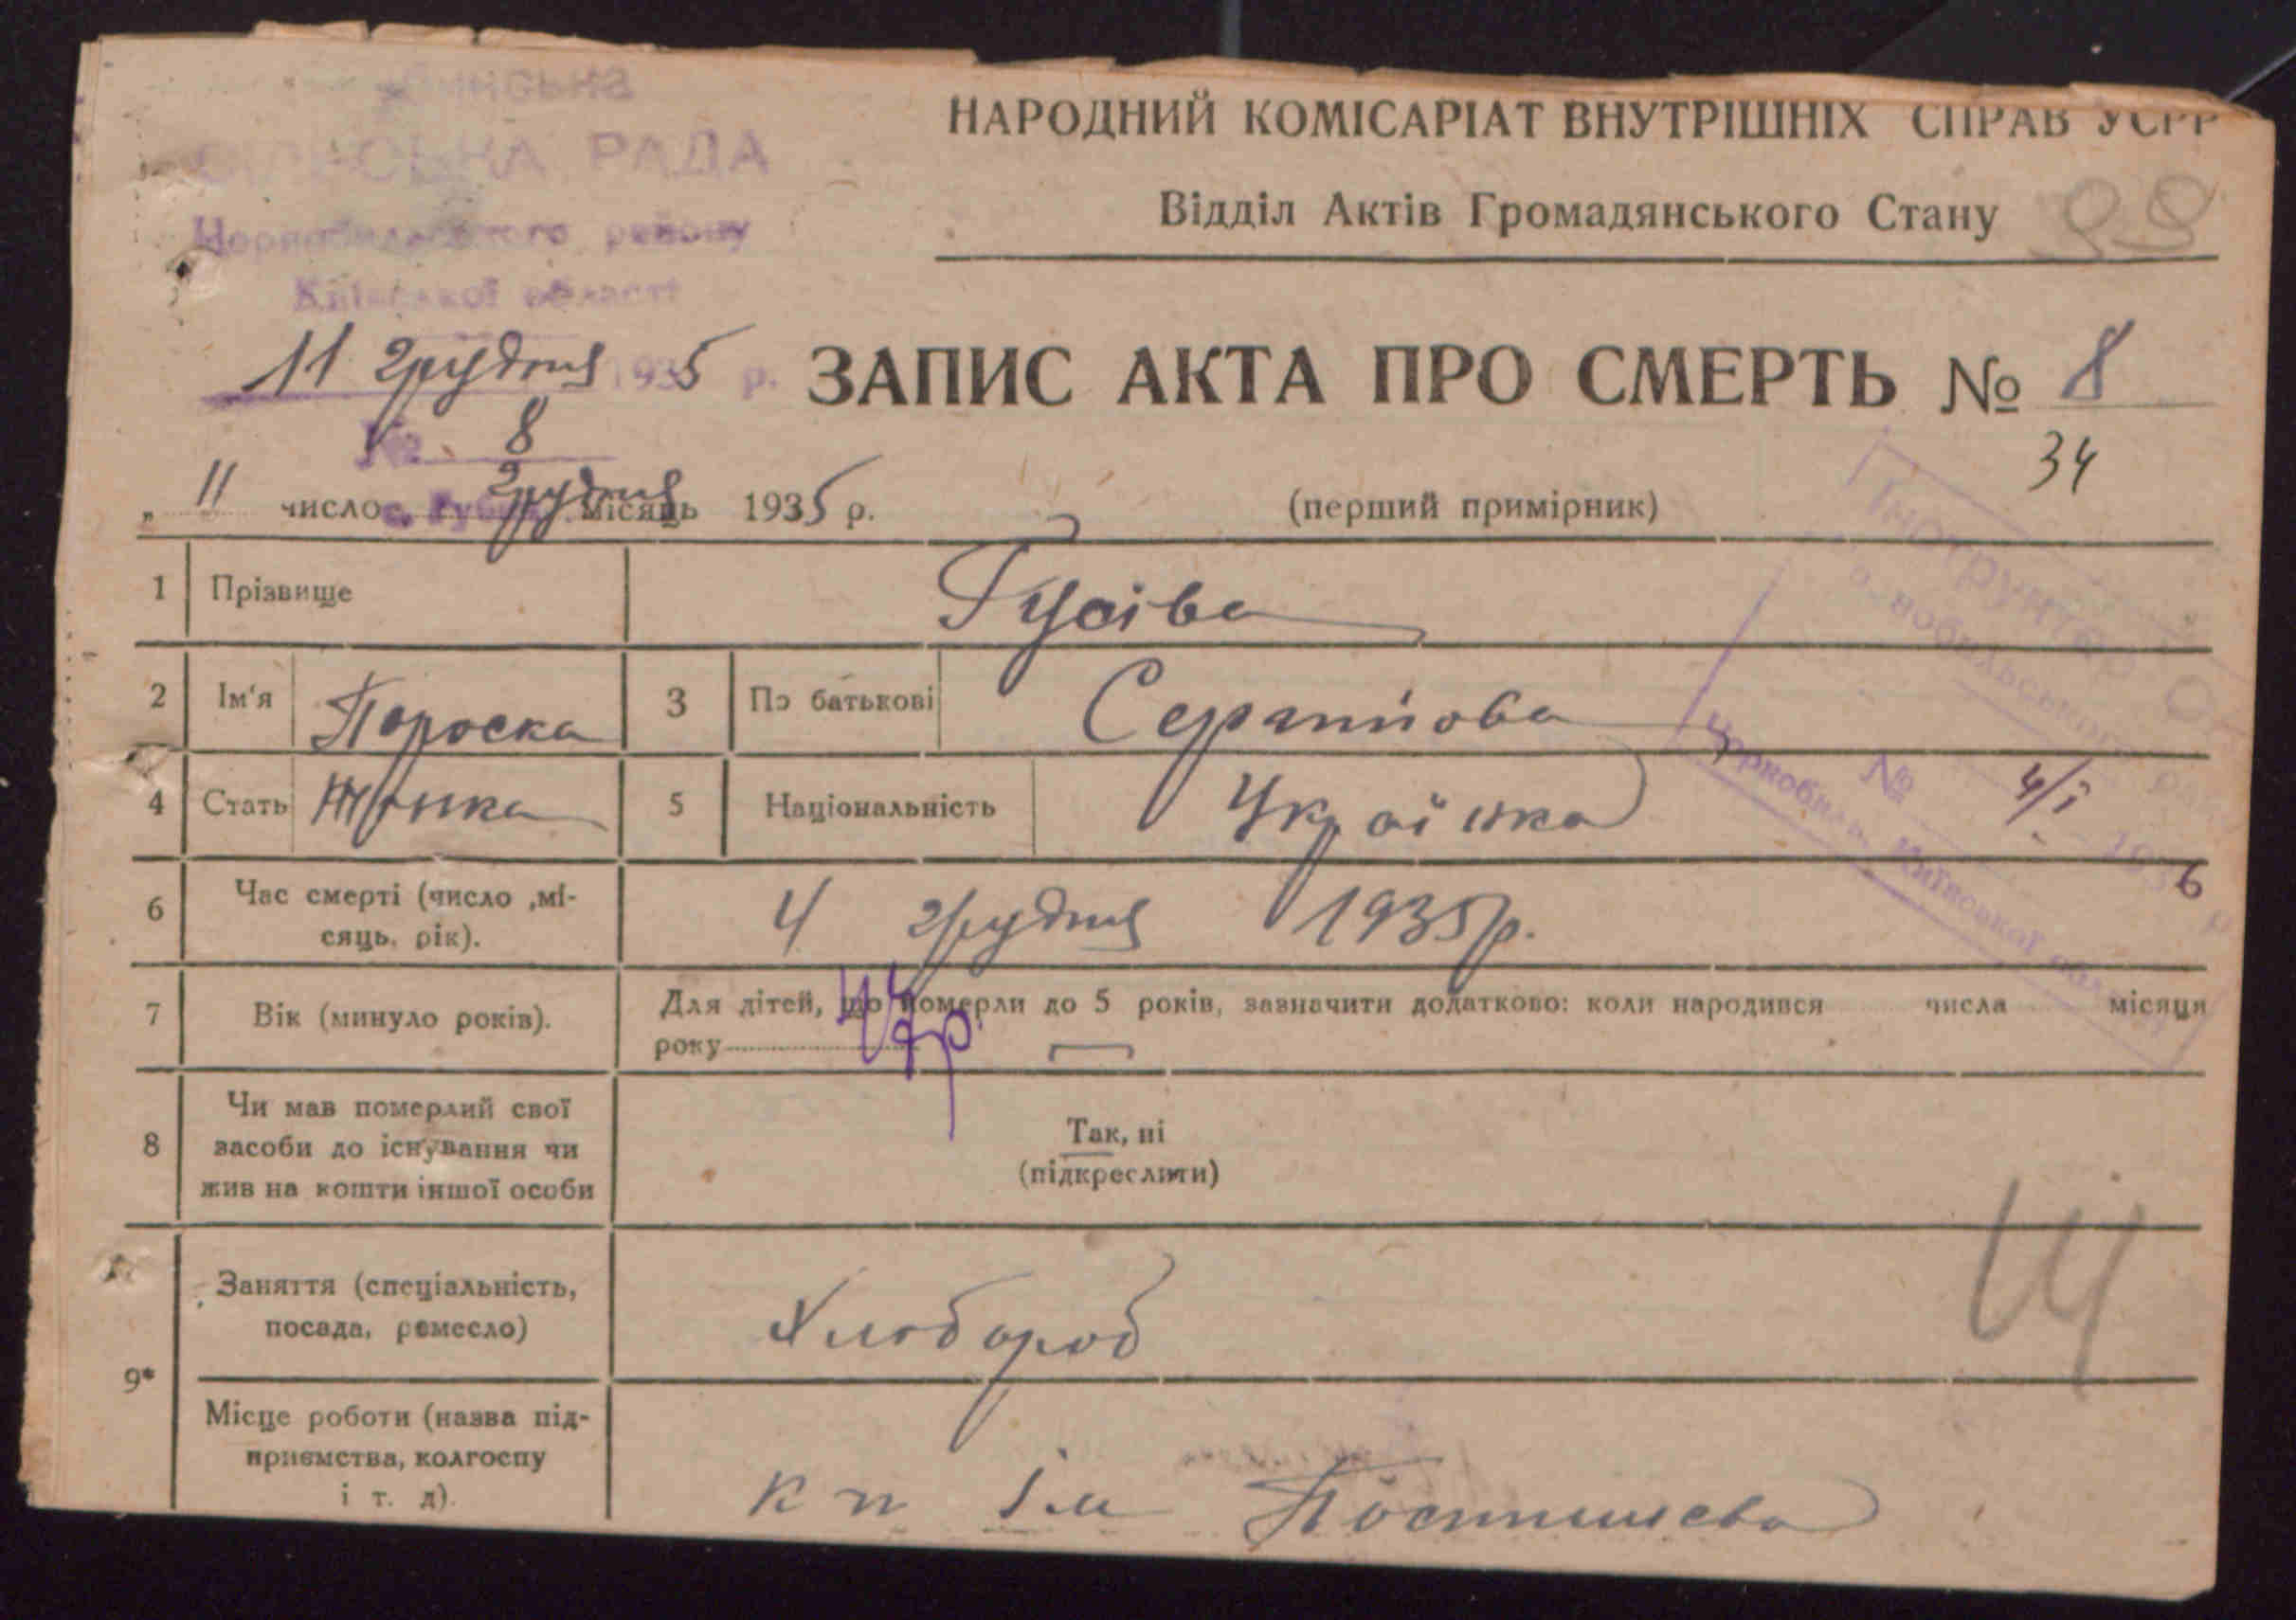 СІЛЬСЬКА РАДА
Чорнобильського району
Київської області
11 грудня 1935 р.
№ 8
НАРОДНИЙ КОМІСАРІАТ ВНУТРІШНІХ СПРАВ УСРР
Відділ Актів Громадянського Стану
ЗАПИС АКТА ПРО СМЕРТЬ № 8
34
„ 11 число грудня місяць 1935 р.
(перший примірник)
1 Прізвище Гусіва
2 Ім'я Пароска 3 По батькові
4 Стать Жінка 5 Національність Українка
Інструктор
№ 4/І 1936 р.
Чорнобиль, Київської області
6 Час смерті (число ,мі-
сяць, рік). 4 грудня 1935 р.
7 Вік (минуло років). 44 р.
Для дітей, що померли до 5 років, зазначити додатково: коли народився числа місяця
року
8 Чи мав померлий свої
засоби до існування чи
жив на кошти іншої особи
Так, ні
(підкреслити)
9* Заняття (спеціальність,
посада, ремесло) Хлібороб
Місце роботи (назва під-
приємства, колгоспу
і т. д). к г ім Постишева